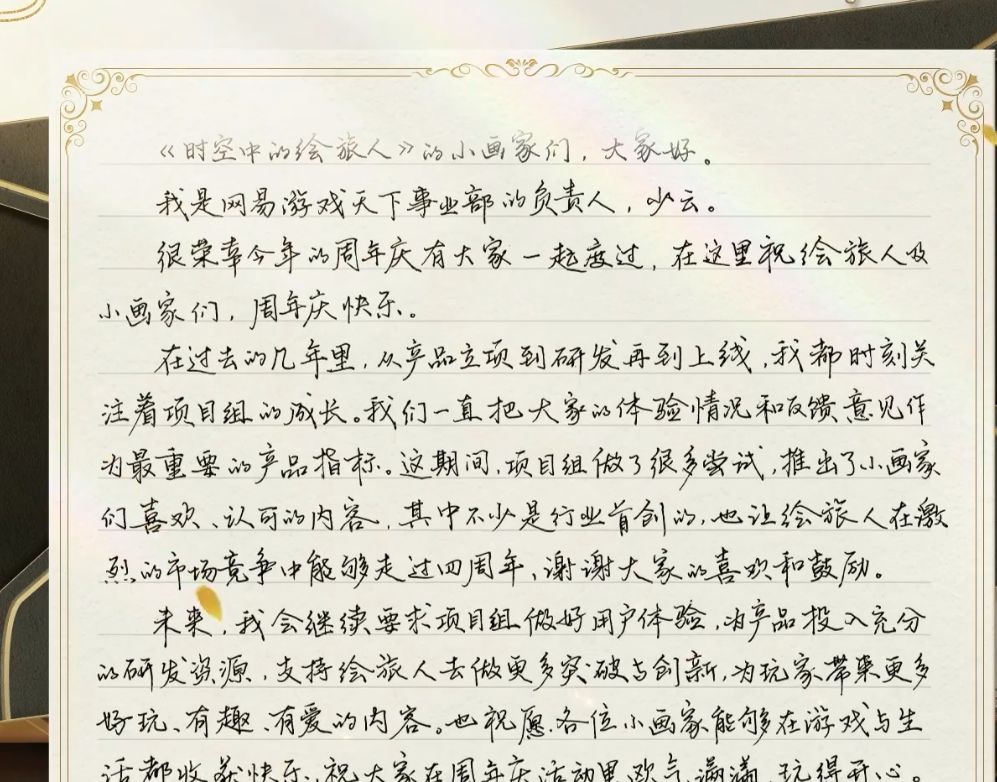 《时空中的绘旅人》的小画家们，大家好。
我是网易游戏天下事业部的负责人，少云。
很荣幸今年的周年庆有大家一起度过，在这里祝绘旅人及
小画家们，周年庆快乐。
在过去的几年里，从产品立项到研发再到上线，我都时刻关
注着项目组的成长。我们一直把大家的体验情况和反馈意见作
为最重要的产品指标。这期间，项目组做了很多尝试，推出了小画家
们喜欢、认可的内容，其中不少是行业首创的，也让绘旅人在激
烈的市场竞争中能够走过四周年，谢谢大家的喜欢和鼓励。
未来，我会继续要求项目组做好用户体验，为产品投入充分
的研发资源，支持绘旅人去做更多突破与创新，为玩家带来更多
好玩、有趣、有爱的内容。也祝愿各位小画家能够在游戏与生
活都收获快乐，祝大家在周年庆活动里欧气满满，玩得开心。